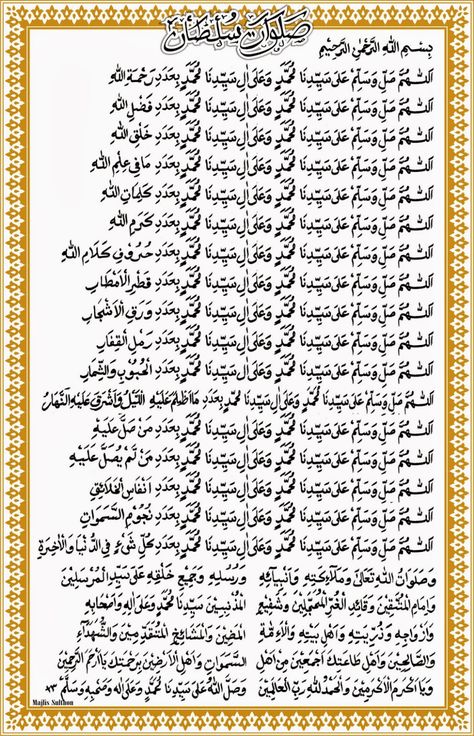 صَلَوَاتُ سُلْطَانْ
بِسْمِ اللهِ الرَّحْمٰنِ الرَّحِيْمِ
اَللّٰهُمَّ صَلِّ وَسَلِّمْ عَلٰى سَيِّدِنَا مُحَمَّدٍ وَعَلٰى اٰلِ سَيِّدِنَا مُحَمَّدٍ بِعَدَدِ رَحْمَةِ اللهِ
اَللّٰهُمَّ صَلِّ وَسَلِّمْ عَلٰى سَيِّدِنَا مُحَمَّدٍ وَعَلٰى اٰلِ سَيِّدِنَا مُحَمَّدٍ بِعَدَدِ فَضْلِ اللهِ
اَللّٰهُمَّ صَلِّ وَسَلِّمْ عَلٰى سَيِّدِنَا مُحَمَّدٍ وَعَلٰى اٰلِ سَيِّدِنَا مُحَمَّدٍ بِعَدَدِ خَلْقِ اللهِ
اَللّٰهُمَّ صَلِّ وَسَلِّمْ عَلٰى سَيِّدِنَا مُحَمَّدٍ وَعَلٰى اٰلِ سَيِّدِنَا مُحَمَّدٍ بِعَدَدِ مَا فِى عِلْمِ اللهِ
اَللّٰهُمَّ صَلِّ وَسَلِّمْ عَلٰى سَيِّدِنَا مُحَمَّدٍ وَعَلٰى اٰلِ سَيِّدِنَا مُحَمَّدٍ بِعَدَدِ كَلِمَاتِ اللهِ
اَللّٰهُمَّ صَلِّ وَسَلِّمْ عَلٰى سَيِّدِنَا مُحَمَّدٍ وَعَلٰى اٰلِ سَيِّدِنَا مُحَمَّدٍ بِعَدَدِ كَرَمِ اللهِ
اَللّٰهُمَّ صَلِّ وَسَلِّمْ عَلٰى سَيِّدِنَا مُحَمَّدٍ وَعَلٰى اٰلِ سَيِّدِنَا مُحَمَّدٍ بِعَدَدِ حُرُوْفِ كَلَامِ اللهِ
اَللّٰهُمَّ صَلِّ وَسَلِّمْ عَلٰى سَيِّدِنَا مُحَمَّدٍ وَعَلٰى اٰلِ سَيِّدِنَا مُحَمَّدٍ بِعَدَدِ قَطْرِ الْاَمْطَارِ
اَللّٰهُمَّ صَلِّ وَسَلِّمْ عَلٰى سَيِّدِنَا مُحَمَّدٍ وَعَلٰى اٰلِ سَيِّدِنَا مُحَمَّدٍ بِعَدَدِ وَرَقِ الْاَشْجَارِ
اَللّٰهُمَّ صَلِّ وَسَلِّمْ عَلٰى سَيِّدِنَا مُحَمَّدٍ وَعَلٰى اٰلِ سَيِّدِنَا مُحَمَّدٍ بِعَدَدِ رَمْلِ الْقِفَارِ
اَللّٰهُمَّ صَلِّ وَسَلِّمْ عَلٰى سَيِّدِنَا مُحَمَّدٍ وَعَلٰى اٰلِ سَيِّدِنَا مُحَمَّدٍ بِعَدَدِ الْحُبُوْبِ وَالثِّمَارِ
اَللّٰهُمَّ صَلِّ وَسَلِّمْ عَلٰى سَيِّدِنَا مُحَمَّدٍ وَعَلٰى اٰلِ سَيِّدِنَا مُحَمَّدٍ بِعَدَدِ مَا اَظْلَمَ عَلَيْهِ اللَّيْلُ وَاَشْرَقَ عَلَيْهِ النَّهَارُ
اَللّٰهُمَّ صَلِّ وَسَلِّمْ عَلٰى سَيِّدِنَا مُحَمَّدٍ وَعَلٰى اٰلِ سَيِّدِنَا مُحَمَّدٍ بِعَدَدِ مَنْ صَلّٰى عَلَيْهِ
اَللّٰهُمَّ صَلِّ وَسَلِّمْ عَلٰى سَيِّدِنَا مُحَمَّدٍ وَعَلٰى اٰلِ سَيِّدِنَا مُحَمَّدٍ بِعَدَدِ مَنْ لَمْ يُصَلِّ عَلَيْهِ
اَللّٰهُمَّ صَلِّ وَسَلِّمْ عَلٰى سَيِّدِنَا مُحَمَّدٍ وَعَلٰى اٰلِ سَيِّدِنَا مُحَمَّدٍ بِعَدَدِ اَنْفَاسِ الْخَلَائِقِ
اَللّٰهُمَّ صَلِّ وَسَلِّمْ عَلٰى سَيِّدِنَا مُحَمَّدٍ وَعَلٰى اٰلِ سَيِّدِنَا مُحَمَّدٍ بِعَدَدِ نُجُوْمِ السَّمٰوَاتِ
اَللّٰهُمَّ صَلِّ وَسَلِّمْ عَلٰى سَيِّدِنَا مُحَمَّدٍ وَعَلٰى اٰلِ سَيِّدِنَا مُحَمَّدٍ بِعَدَدِ كُلِّ شَيْءٍ فِى الدُّنْيَا وَالْاٰخِرَةِ
وَصَلَوَاتُ اللهِ تَعَالٰى وَمَلَآئِكَتِهِ وَاَنْبِيَآئِهِ وَرُسُلِهِ وَجَمِيْعِ خَلْقِهِ عَلٰى سَيِّدِ الْمُرْسَلِيْنَ
وَاِمَامِ الْمُتَّقِيْنَ وَقَائِدِ الْغُرِّ الْمُحَجَّلِيْنَ وَشَفِيْعِ الْمُذْنِبِيْنَ سَيِّدِنَا مُحَمَّدٍ وَعَلٰى اٰلِهِ وَاَصْحَابِهِ
وَاَزْوَاجِهِ وَذُرِّيَّتِهِ وَاَهْلِ بَيْتِهِ وَالْاَئِمَّةِ الْمَاضِيْنَ وَالْمَشَائِخِ الْمُتَقَدِّمِيْنَ وَالشُّهَدَآءِ
وَالصَّالِحِيْنَ وَاَهْلِ طَاعَتِكَ اَجْمَعِيْنَ مِنْ اَهْلِ السَّمٰوَاتِ وَاَهْلِ الْاَرَضِيْنَ بِرَحْمَتِكَ يَا اَرْحَمَ الرَّاحِمِيْنَ
وَيَا اَكْرَمَ الْاَكْرَمِيْنَ وَالْحَمْدُ لِلّٰهِ رَبِّ الْعَالَمِيْنَ وَصَلَّى اللهُ عَلٰى سَيِّدِنَا مُحَمَّدٍ وَعَلٰى اٰلِهِ وَصَحْبِهِ وَسَلَّمَ ٨٣
Majlis Sulthon